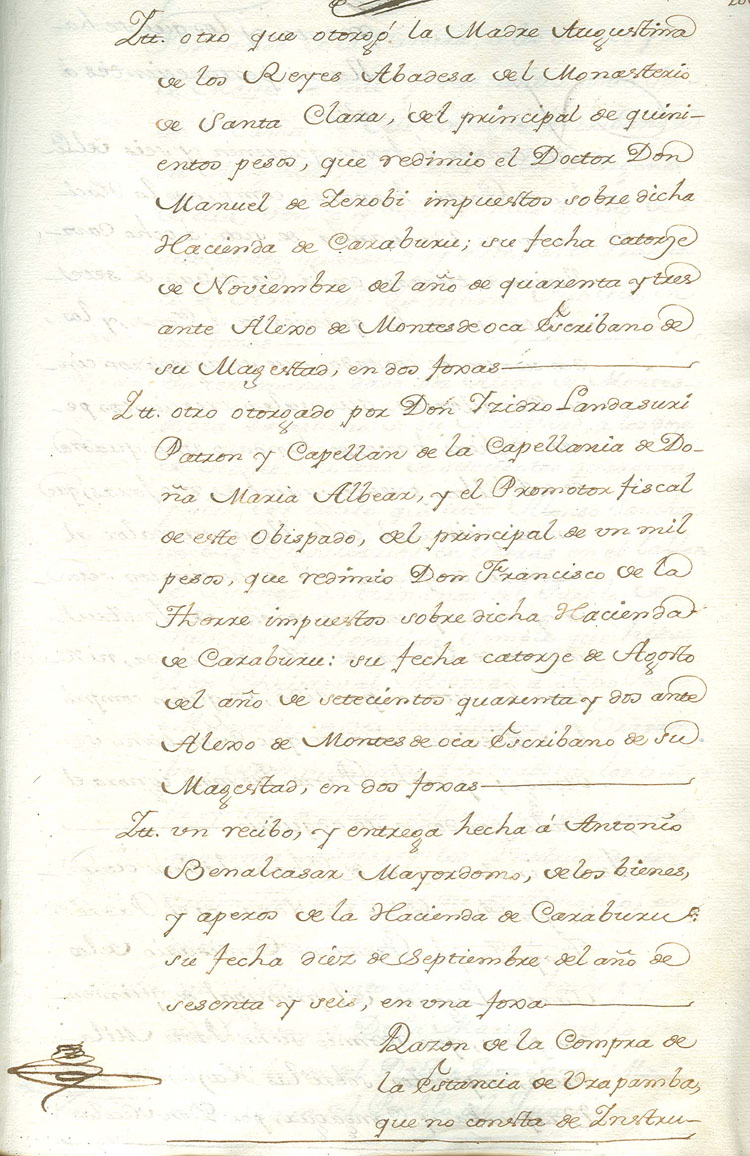 Itt. otro que otorgó la Madre Augustina
de los Reyes Abadesa del Monasterio
de Santa Clara, del principal de quini-
entos pesos, que redimio el Doctor Don
Manuel de Zerobi impuestos sobre dicha
Hacienda de Caraburu; su fecha catorze
de Noviembre del año de quarenta y tres
ante Alexo de Montes de oca Escribano de
su Magestad, en dos foxas
Itt. otro otorgado por Don Yzidro Landasuri
Patron y Capellan de la Capellania de Do-
ña Maria Albear, y el Promotor fiscal
de este Obispado, del principal de un mil
pesos, que redimio Don Francisco de la
Thorre impuestos sobre dicha Hacienda
de Caraburu: su fecha catorze de Agosto
del año de setecientos quarenta y dos ante
Alexo de Montes de oca Escribano de su
Magestad, en dos foxas
Itt. un recibo, y entrega hecha á Antonio
Benalcasar Mayordomo, de los bienes,
y aperos de la Hacienda de Caraburu:
su fecha diez de Septiembre del año de
sesenta y seis, en una foxa
Razon de la Compra de
la Estancia de Urapamba,
que no consta de Instru-